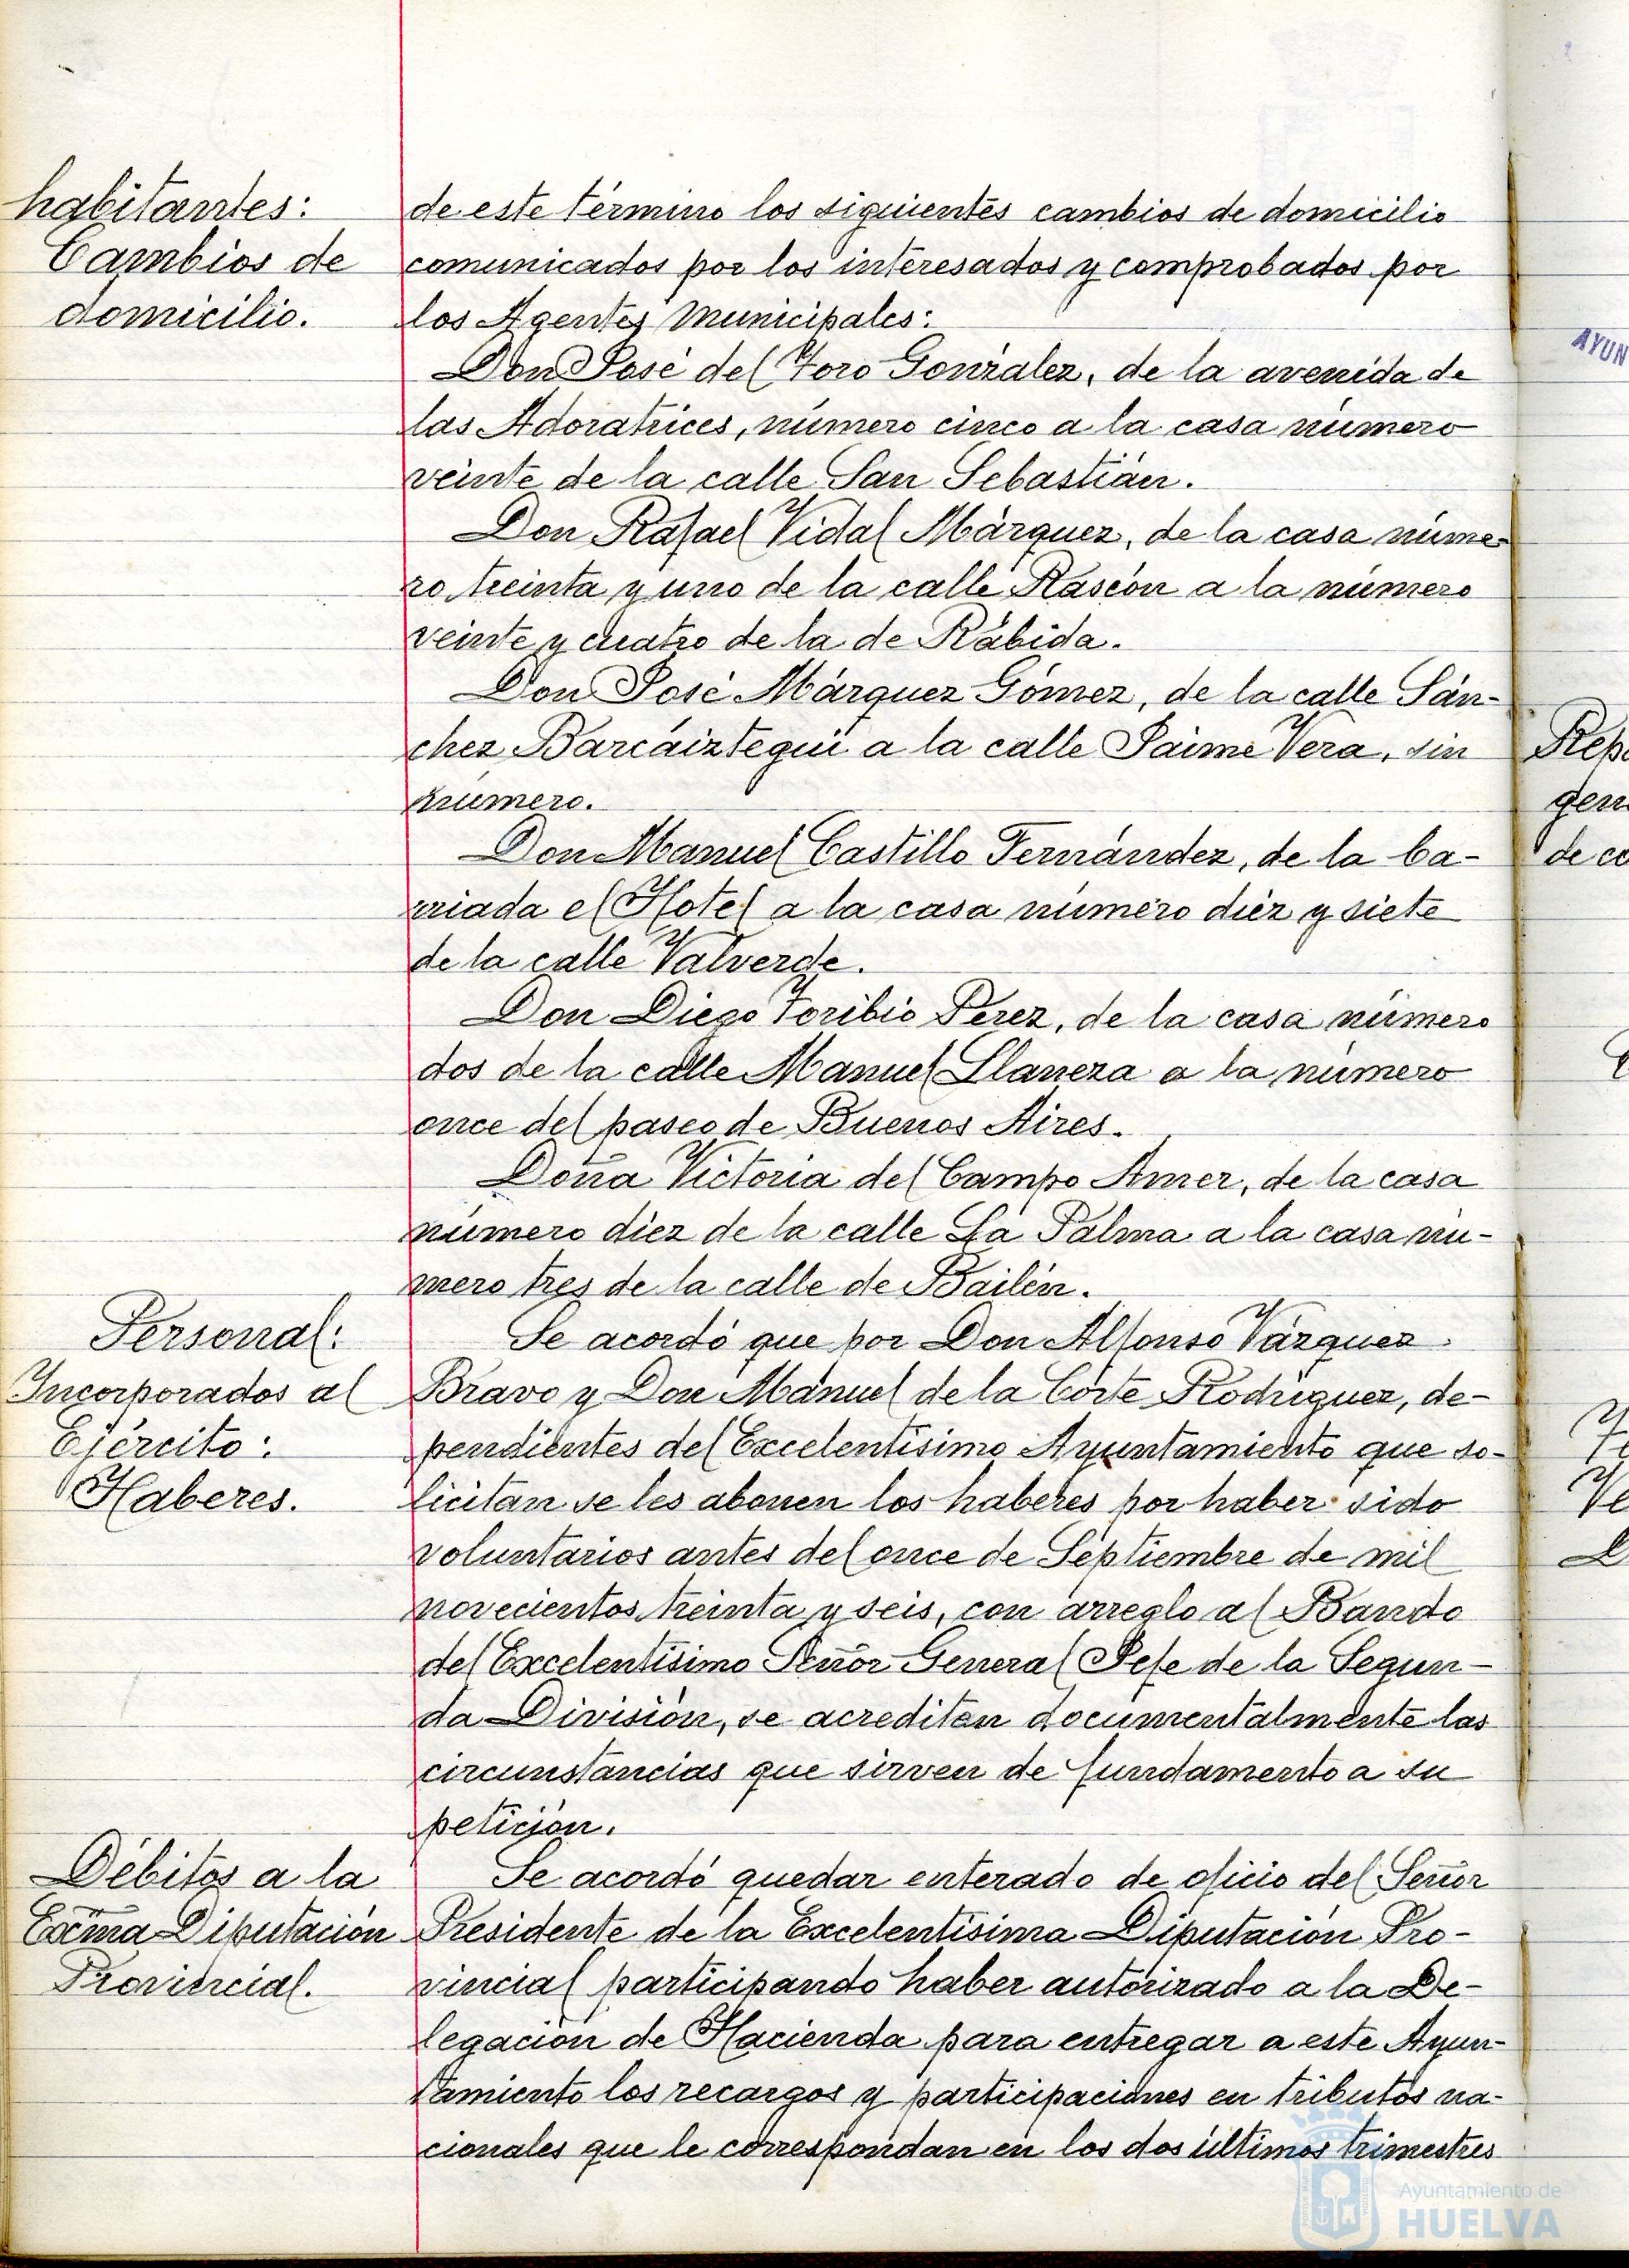 habitantes:
Cambios de
domicilio.
de este término los siguientes cambios de domicilio
comunicados por los interesados y comprobados por
los Agentes Municipales:
Don José del Toro González, de la avenida de
las Adoratrices, número cinco a la casa número
veinte de la calle San Sebastián.
Don Rafael Vidal Márquez, de la casa núme-
ro treinta y uno de la calle Rascón a la número
veinte y cuatro de la de Rábida.
Don José Márquez Gómez, de la calle Sán-
chez Barcáiztegui a la calle Jaime Vera, sin
número.
Don Manuel Castillo Fernández, de la ba-
rriada el Hotel a la casa número diez y siete
de la calle Valverde.
Don Diego Toribio Pérez, de la casa número
dos de la calle Manuel Llaneza a la número
once del paseo de Buenos Aires.
Doña Victoria del Campo Amer, de la casa
número diez de la calle La Palma a la casa nú-
mero tres de la calle de Bailén.
Personal:
Incorporados al
Ejército:
Haberes.
Se acordó que por Don Alfonso Vázquez
Bravo y Don Manuel de la Corte Rodríguez, de-
pendientes del Excelentísimo Ayuntamiento que so-
licitan se les abonen los haberes por haber sido
voluntarios antes del once de Septiembre de mil
novecientos treinta y seis, con arreglo al Bando
del Excelentísimo Señor General Jefe de la Segun-
da División, se acrediten documentalmente las
circunstancias que sirven de fundamento a su
petición.
Débitos a la
Excma Diputación
Provincial.
Se acordó quedar enterado de oficio del Señor
Presidente de la Excelentísima Diputación Pro-
vincial participando haber autorizado a la De-
legación de Hacienda para entregar a este Ayun-
tamiento los recargos y participaciones en tributos na-
cionales que le correspondan en los dos últimos trimestres
AYUN
Rep
gen
de co
Ayuntamiento de
HUELVA